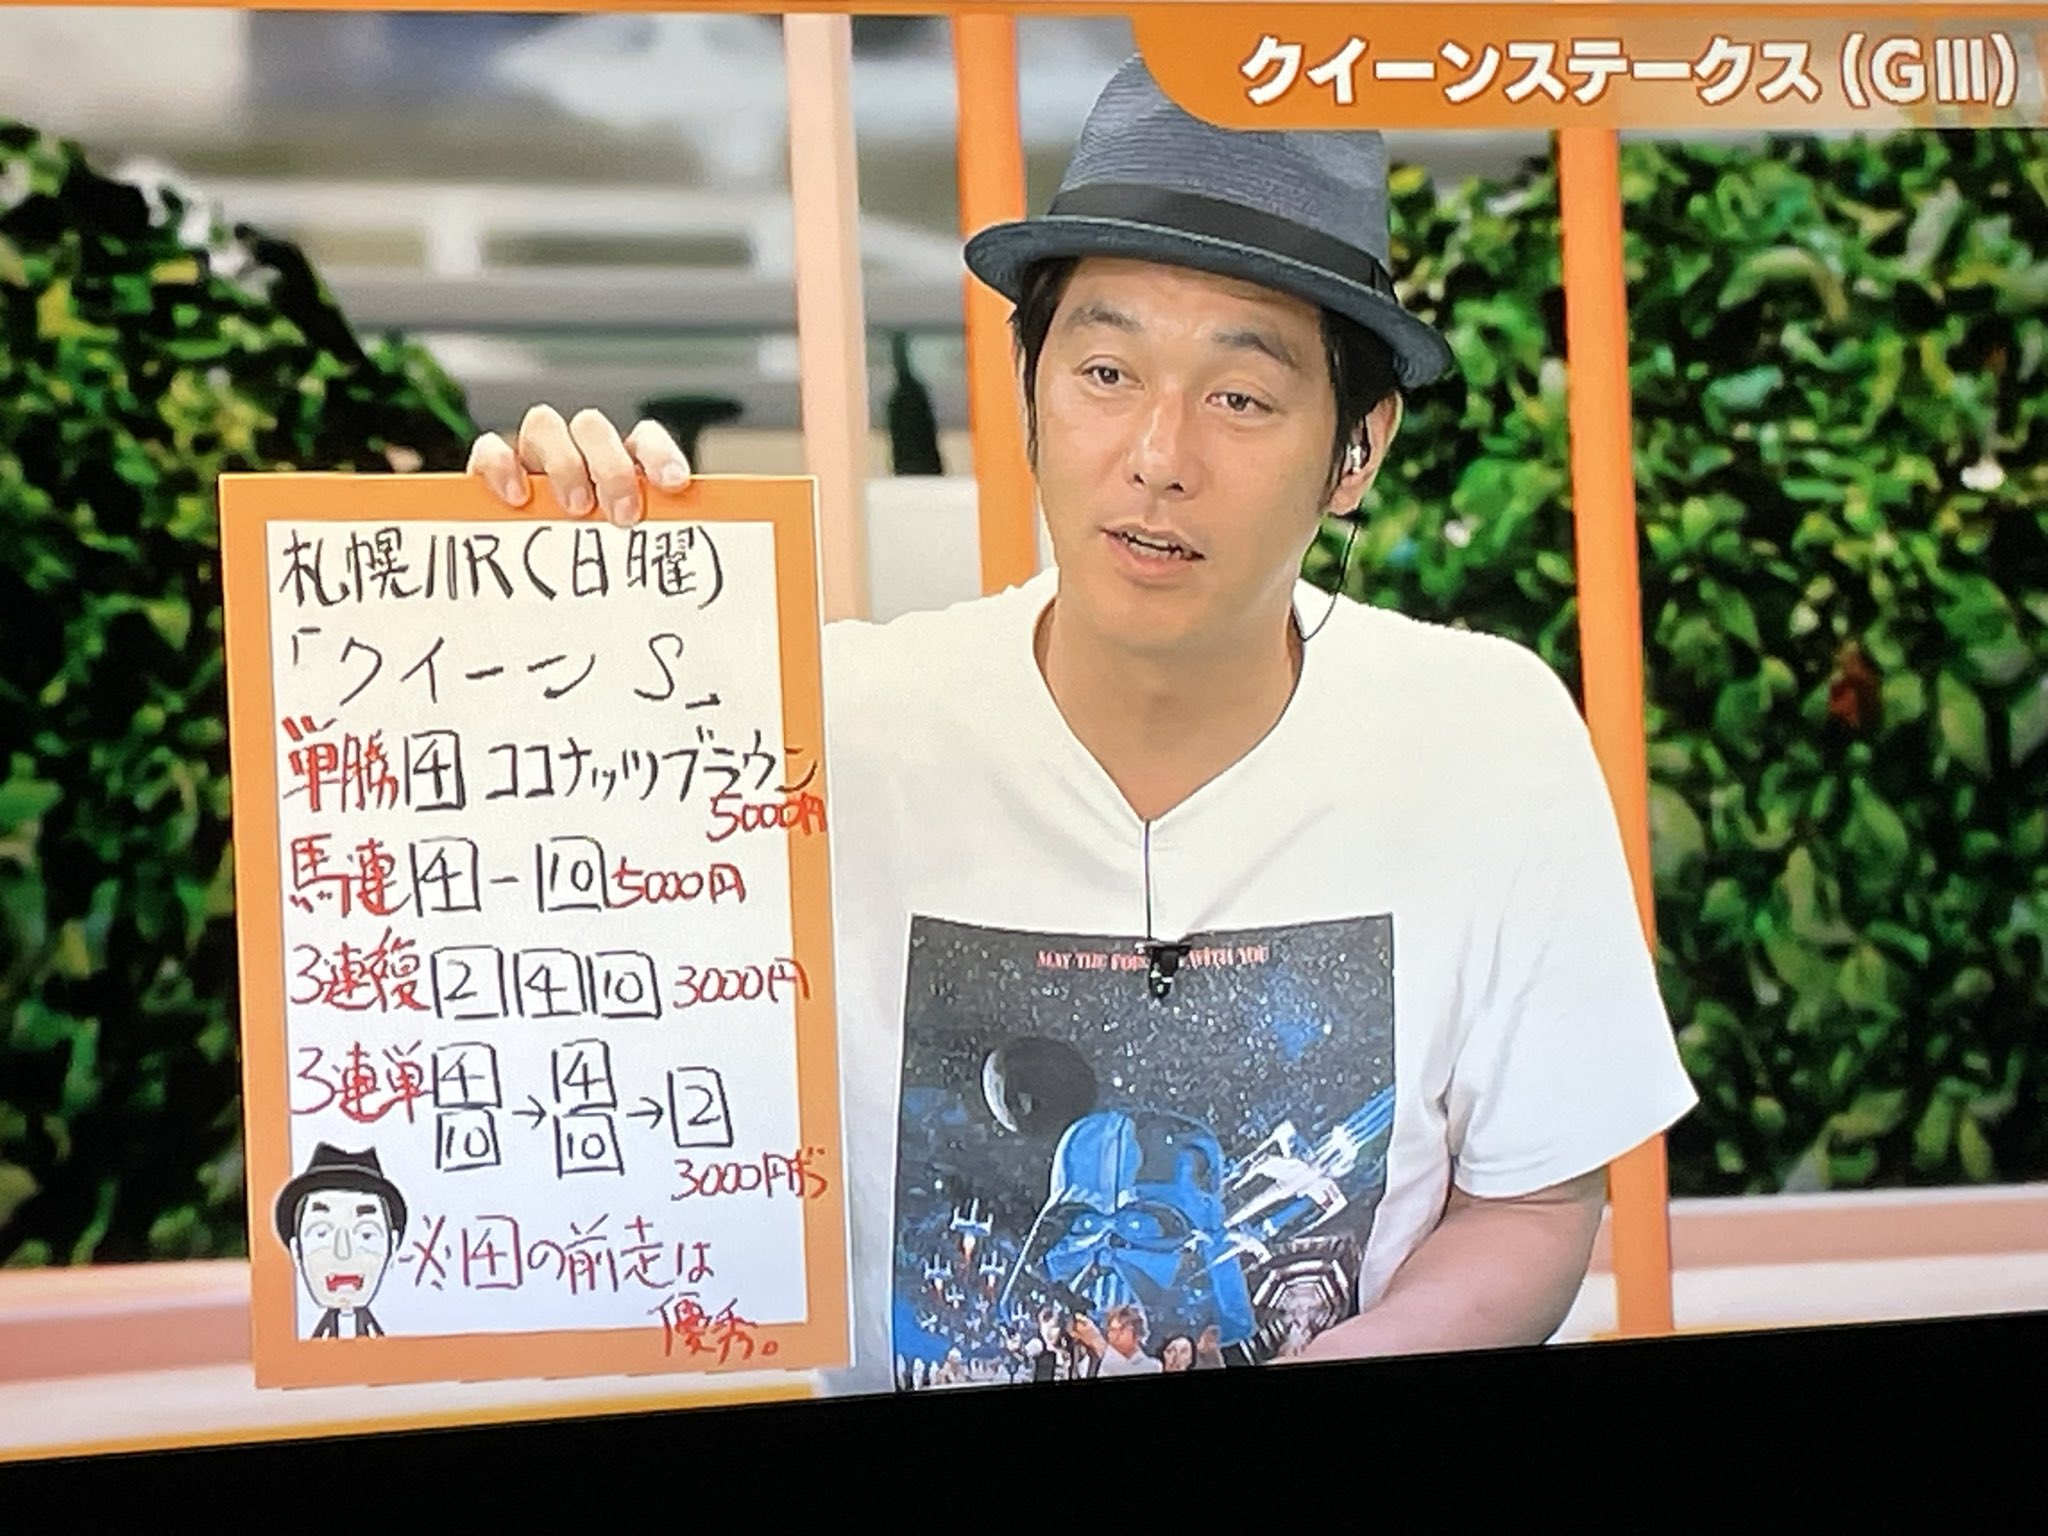 クイーンステークス(GⅢ)
札幌11R(日曜)
「クイーンS」
単勝 4 ココナッツブラウン
5000円
馬連 4 - 10 5000円
3連複 2 4 10 3000円
3連単 4 → 4 → 2
10 10
3000円ずつ
※4の前走は
優秀。
MAY THE FORCE BE WITH YOU